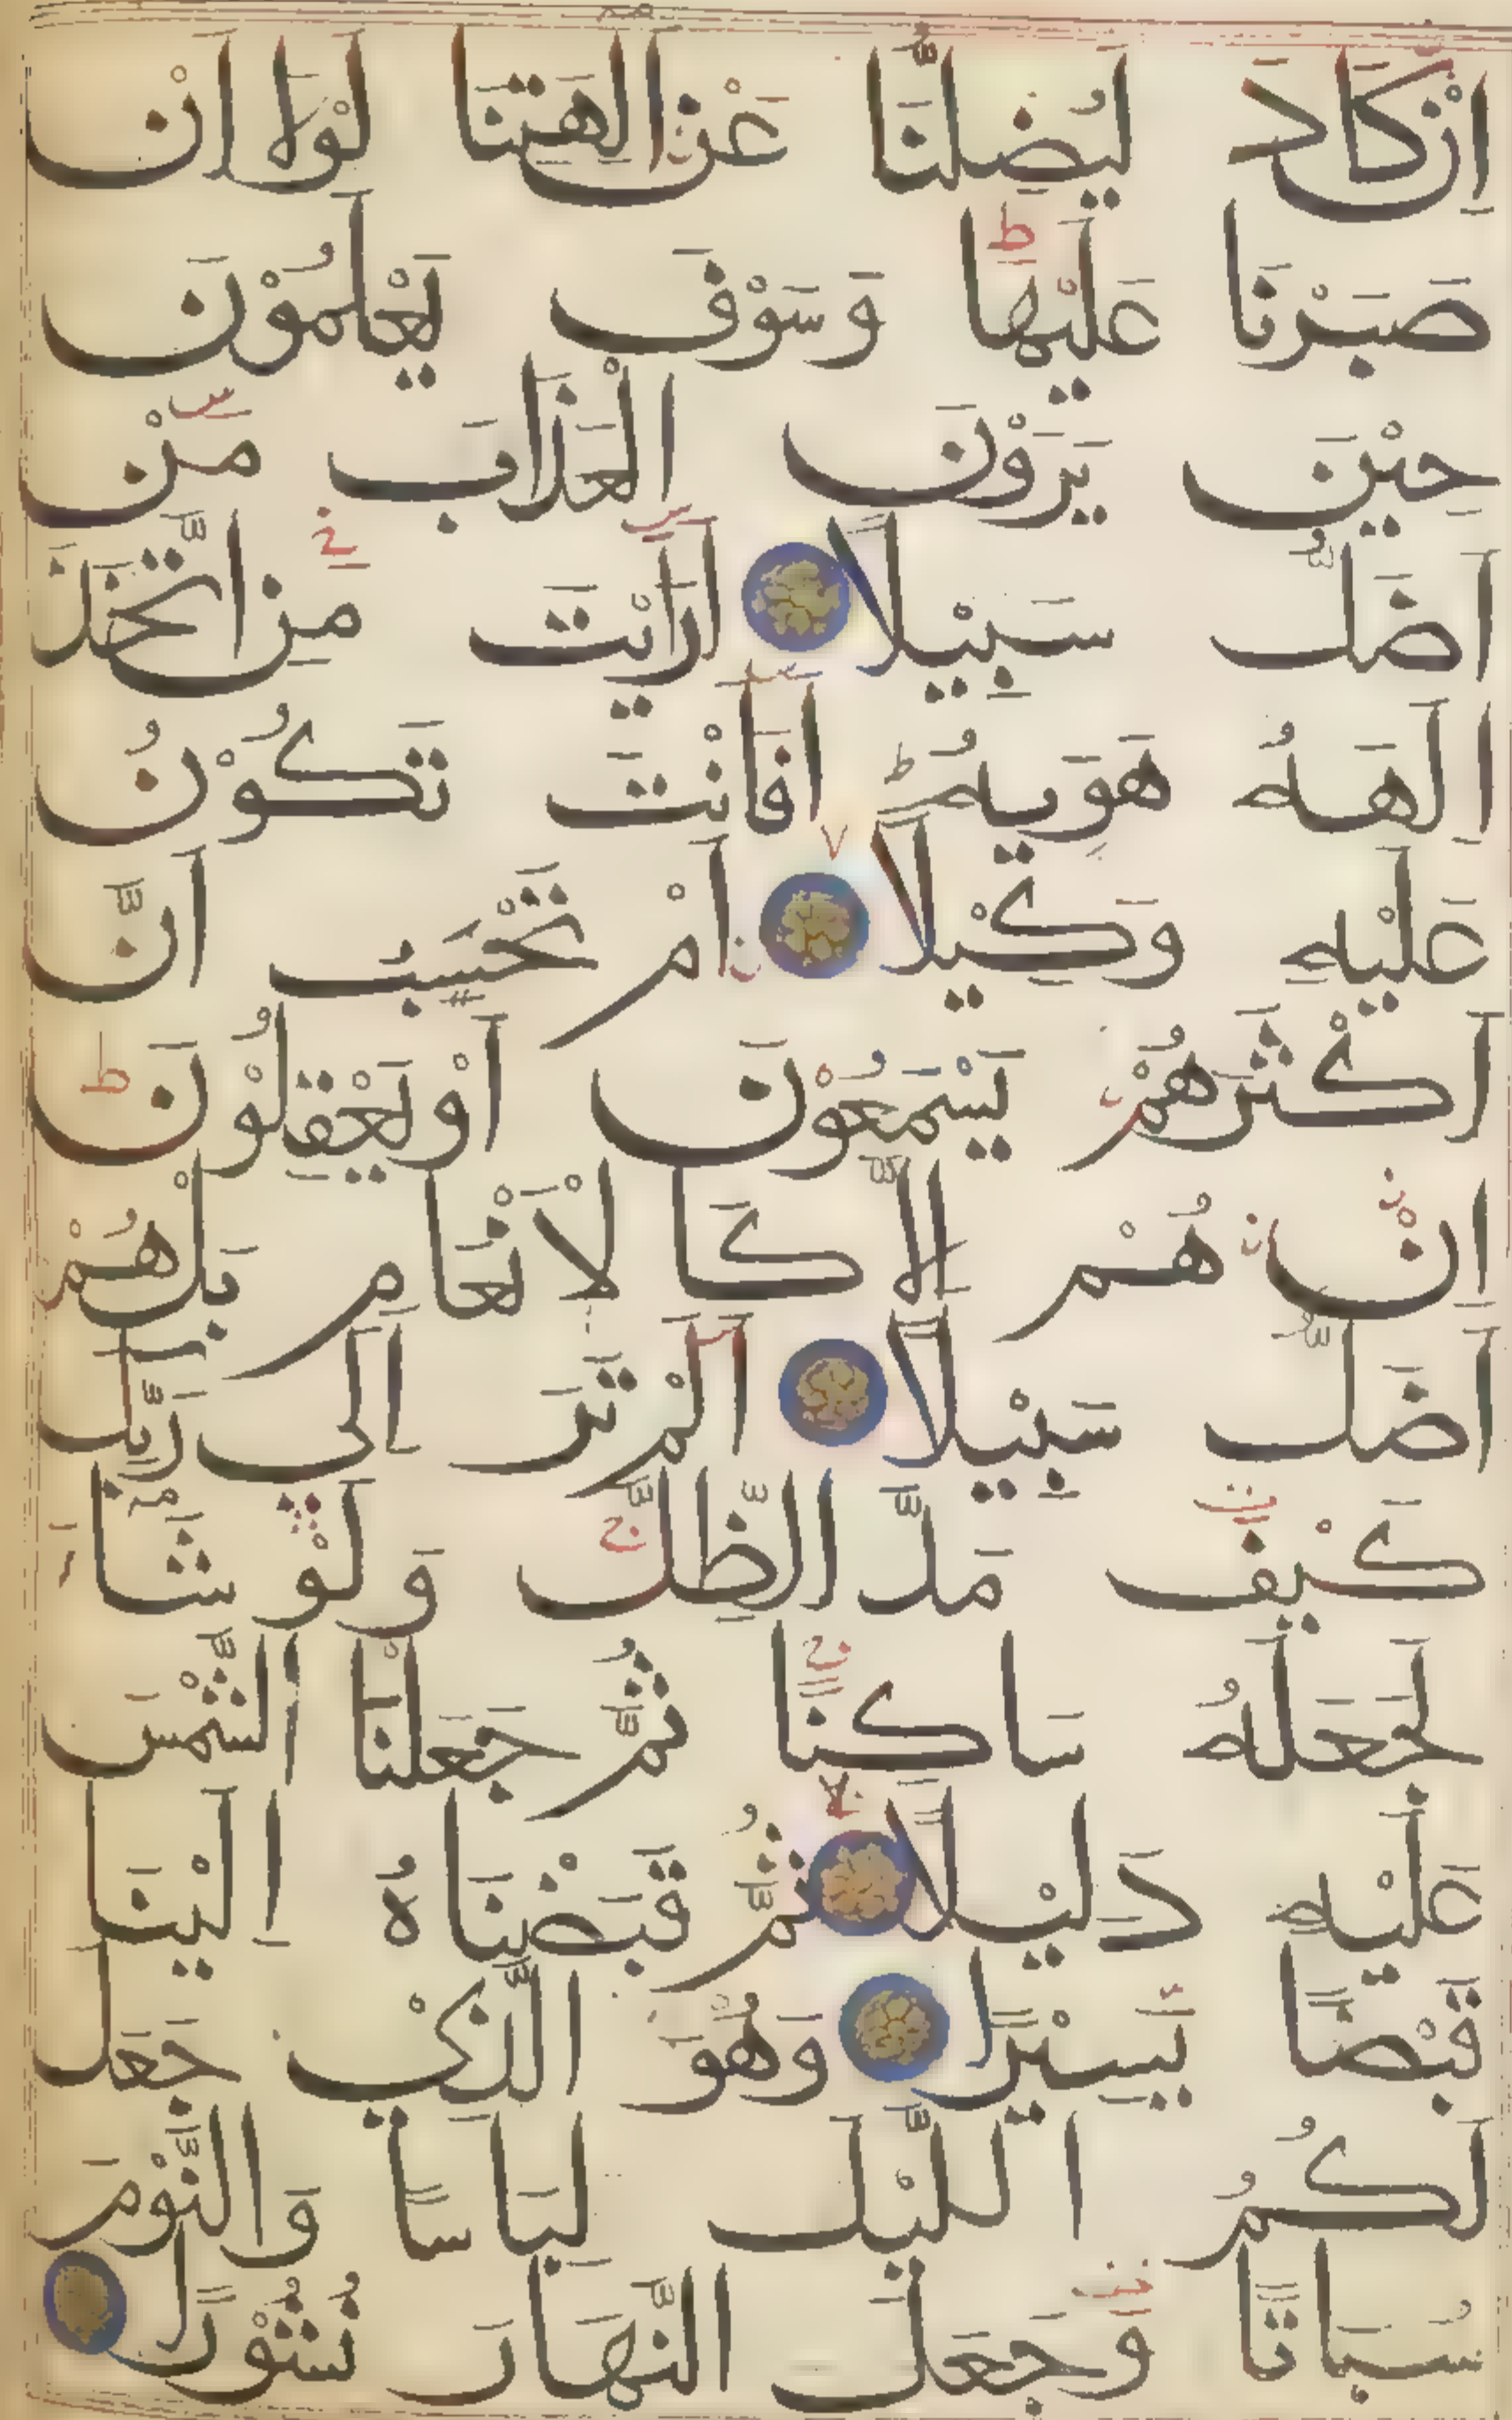 اِنْ كَادَ لَيُضِلُّنَا عَنْ اٰلِهَتِنَا لَوْلَا اَنْ
صَبَرْنَا عَلَيْهَا ط وَسَوْفَ يَعْلَمُوْنَ
حِيْنَ يَرَوْنَ الْعَذَابَ مَنْ
اَضَلُّ سَبِيْلًا اَرَاَيْتَ مَنِ اتَّخَذَ
اِلٰهَهُ هَوٰيهُ ط اَفَاَنْتَ تَكُوْنُ
عَلَيْهِ وَكِيْلًا اَمْ تَحْسَبُ اَنَّ
اَكْثَرَهُمْ يَسْمَعُوْنَ اَوْ يَعْقِلُوْنَ ط
اِنْ هُمْ اِلَّا كَالْاَنْعَامِ بَلْ هُمْ
اَضَلُّ سَبِيْلًا اَلَمْ تَرَ اِلٰى رَبِّكَ
كَيْفَ مَدَّ الظِّلَّ ج وَلَوْ شَاءَ
لَجَعَلَهُ سَاكِنًا ج ثُمَّ جَعَلْنَا الشَّمْسَ
عَلَيْهِ دَلِيْلًا لا ثُمَّ قَبَضْنَاهُ اِلَيْنَا
قَبْضًا يَسِيْرًا وَهُوَ الَّذِيْ جَعَلَ
لَكُمُ الَّيْلَ لِبَاسًا وَالنَّوْمَ
سُبَاتًا وَجَعَلَ النَّهَارَ نُشُوْرًا